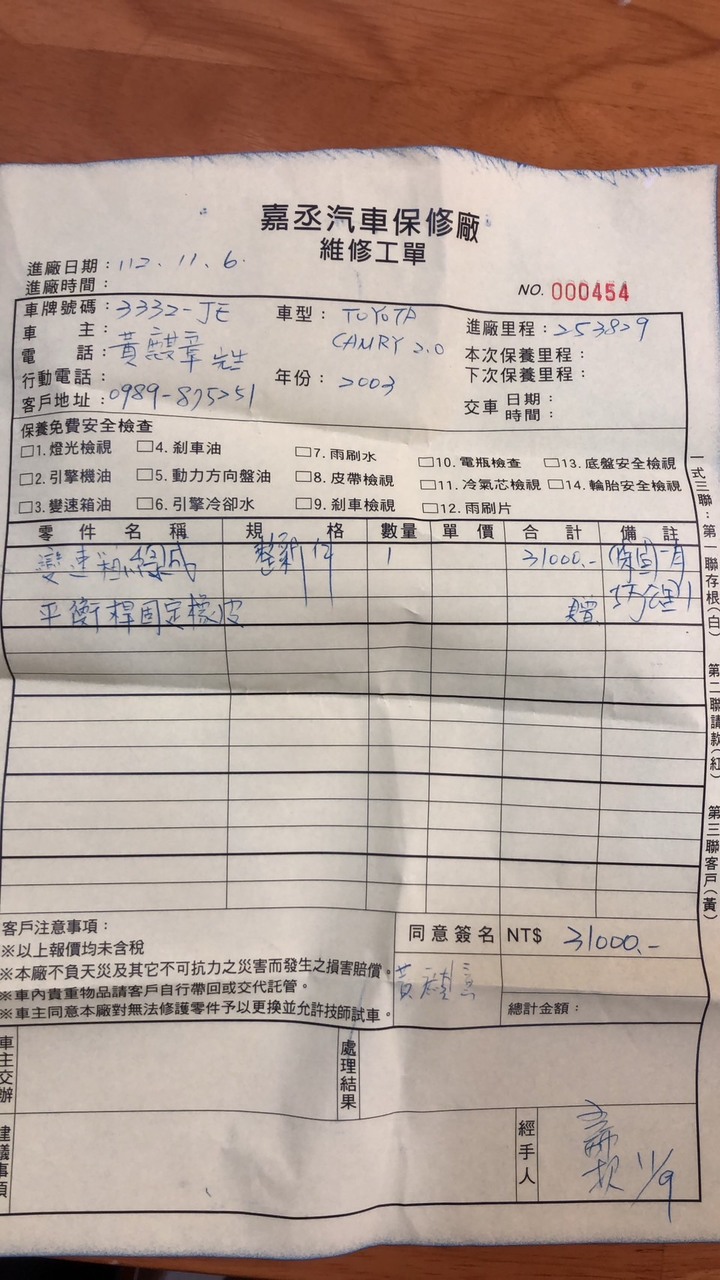 嘉丞汽車保修廠
維修工單
進廠日期：112.11.6.
進廠時間：
NO. 000454
車牌號碼：3332-JE
車主：黃
電話：
行動電話：
客戶地址：0989-875251
車型：TOYOTA
CAMRY 2.0
年份：2003
進廠里程：253829
本次保養里程：
下次保養里程：
交車 日期：
時間：
保養免費安全檢查
□1. 燈光檢視 □4. 剎車油 □7. 雨刷水 □10. 電瓶檢查 □13. 底盤安全檢視
□2. 引擎機油 □5. 動力方向盤油 □8. 皮帶檢視 □11. 冷氣芯檢視 □14. 輪胎安全檢視
□3. 變速箱油 □6. 引擎冷卻水 □9. 剎車檢視 □12. 雨刷片
零件名稱 規格 數量 單價 合計 備註
變速箱總成 1 31000.- 保固
平衡桿固定橡皮 贈
一式三聯：第一聯存根(白) 第二聯請款(紅) 第三聯客戶(黃)
客戶注意事項：
※以上報價均未含稅
※本廠不負天災及其它不可抗力之災害而發生之損害賠償。
※車內貴重物品請客戶自行帶回或交代託管。
※車主同意本廠對無法修護零件予以更換並允許技師試車。
同意簽名 NT$ 31000.-
黃
總計金額：
車主交辦
處理結果
建議事項
經手人
11/9